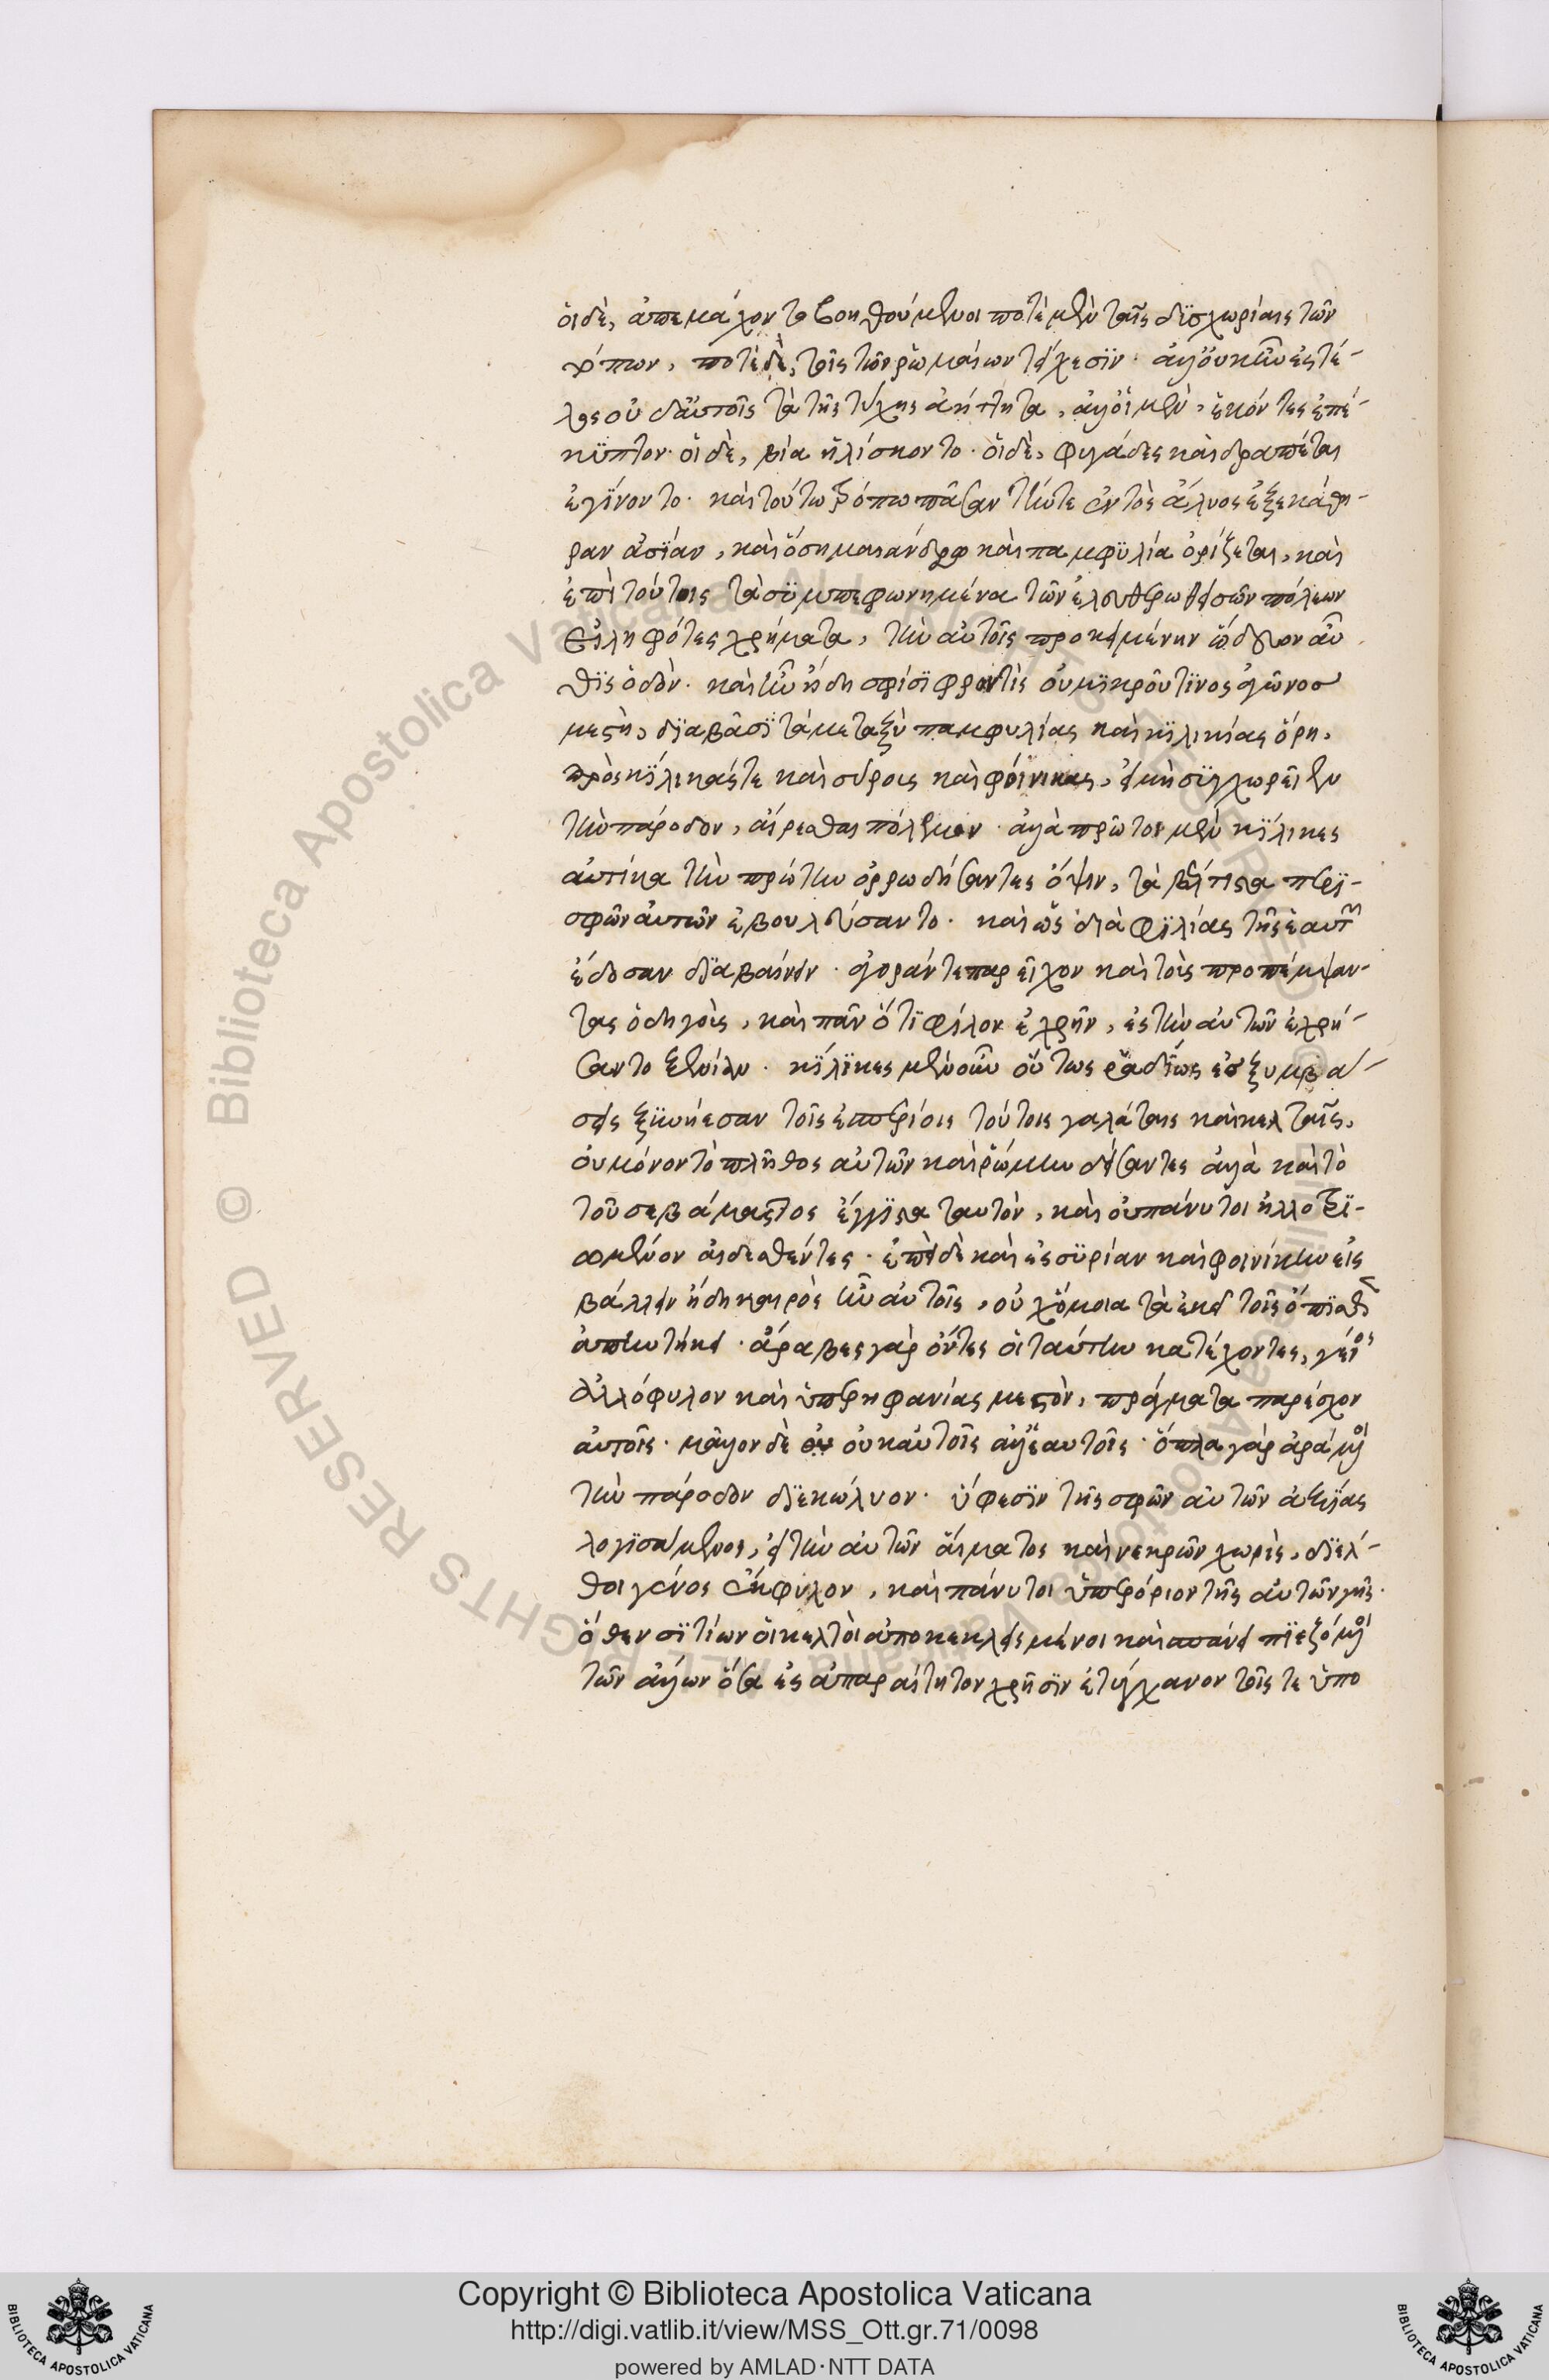 οἱ δὲ, ἀπεμάχοντο βοηθούμενοι ποτὲ μὲν ταῖς δϋσχωρίαις τῶν
τόπων, ποτὲ δὲ, τοῖς τῶν ῥωμαίων τείχεσϊν. ἀλλ' οὐκ ἦν ἐς τέ-
λος οὐδ' αὐτοῖς τὰ τῆς τύχης ἀήττητα, ἀλλ' οἱ μὲν, ἑκόντες ἐπέ-
κϋπτον· οἱ δὲ, βία ἡλίσκοντο· οἱ δὲ, φυγάδες καὶ δραπέται
ἐγίνοντο. καὶ τούτω τρόπω πᾶσαν τήν τε ἐντὸς ἅλυος ἐξεκάθη-
ραν ἀσίαν, καὶ ὅση μαιάνδρω καὶ παμφϋλία ὁρίζεται, καὶ
ἐπὶ τούτοις τὰ σϋμπεφωνημένα τῶν ἐλευθερωθεισῶν πόλεων
εἰληφότες χρήματα, τὴν αὐτοῖς προκειμένην ὥδευον αὖ
θϊς ὁδὸν. καὶ ἦν ἤδη σφίσϊ φροντὶς οὐ μϊκροῦ τϊνος ἀγῶνος
μεστὴ, δϊαβᾶσϊ τὰ μεταξὺ παμφυλίας καὶ κϊλικίας ὄρη,
πρὸς κϊλικάς τε καὶ σύρους καὶ φοίνικας, εἰ μὴ σϋγχωρεῖεν
τὴν πάροδον, αἴρεσθαι πόλεμον. ἀλλὰ πρῶτον μὲν κϊλικες
αὐτίκα τὴν πρώτην ὀρρωδήσαντες ὄψιν, τὰ βέλτιστα περϊ-
σφῶν αὐτῶν ἐβουλεύσαντο. καὶ ὡς διὰ φϊλίας τῆς ἑαυτῶν
ἔδοσαν δϊαβαίνειν. ἀγοράν τε παρεῖχον καὶ τοὺς προπέμψαν-
τας ὁδηγοὺς, καὶ πᾶν ὅ τϊ φίλον ἐχρῆν, ἐς τὴν αὐτῶν ἐχρή-
σαντο ξενίαν. κϊλϊκες μὲν οὖν οὕτως ῥαδϊως ἐς ξυμβά-
σεις ξϋνήεσαν τοῖς ἑσπερίοις τούτοις γαλάταις καὶ κελταῖς,
οὐ μόνον τὸ πλῆθος αὐτῶν καὶ ῥώμην δείσαντες ἀλλὰ καὶ τὸ
τοῦ σεβάσματος ἔγγϊστα ταυτὸν, καὶ οὐ πάνυ τοι ἠλλοτρϊ-
ωμένον αἰδεσθέντες. ἐπεὶ δὲ καὶ ἐς σϋρίαν καὶ φοινίκην εἰς
βάλλειν ἤδη καιρὸς ἦν αὐτοῖς, οὐχ ὅμοια τὰ ἐκεῖ τοῖς ὄπϊσθεν
ἀπηντήκει. ἄραβες γὰρ ὄντες οἱ ταύτην κατέχοντες, γένος
ἀλλόφυλον καὶ ὑπερηφανίας μεστὸν, πράγματα παρέσχον
αὐτοῖς. μᾶλλον δὲ οὐκ αὐτοῖς ἀλλ' ἑαυτοῖς. ὅπλα γὰρ ἀράμενοι
τὴν πάροδον δϊεκώλυον. ὕφεσϊν τῆς σφῶν αὐτῶν ἀξϊας
λογϊσάμενοι, εἰ τὴν αὐτῶν αἵματος καὶ νεκρῶν χωρὶς, δϊελ-
θοι γένος ἔκφυλον, καὶ πάνυ τοι ὑπερόριον τῆς αὐτῶν γῆς.
ὅθεν σϊτίων οἱ κελτοὶ ἀποκεκλεισμένοι καὶ σπάνει πϊεζόμενοι
τῶν ἄλλων ὅσα ἐς ἀπαραίτητον χρῆσϊν ἐτύγχανον τοῖς τε ὑπο
Copyright © Biblioteca Apostolica Vaticana
http://digi.vatlib.it/view/MSS_Ott.gr.71/0098
powered by AMLAD·NTT DATA